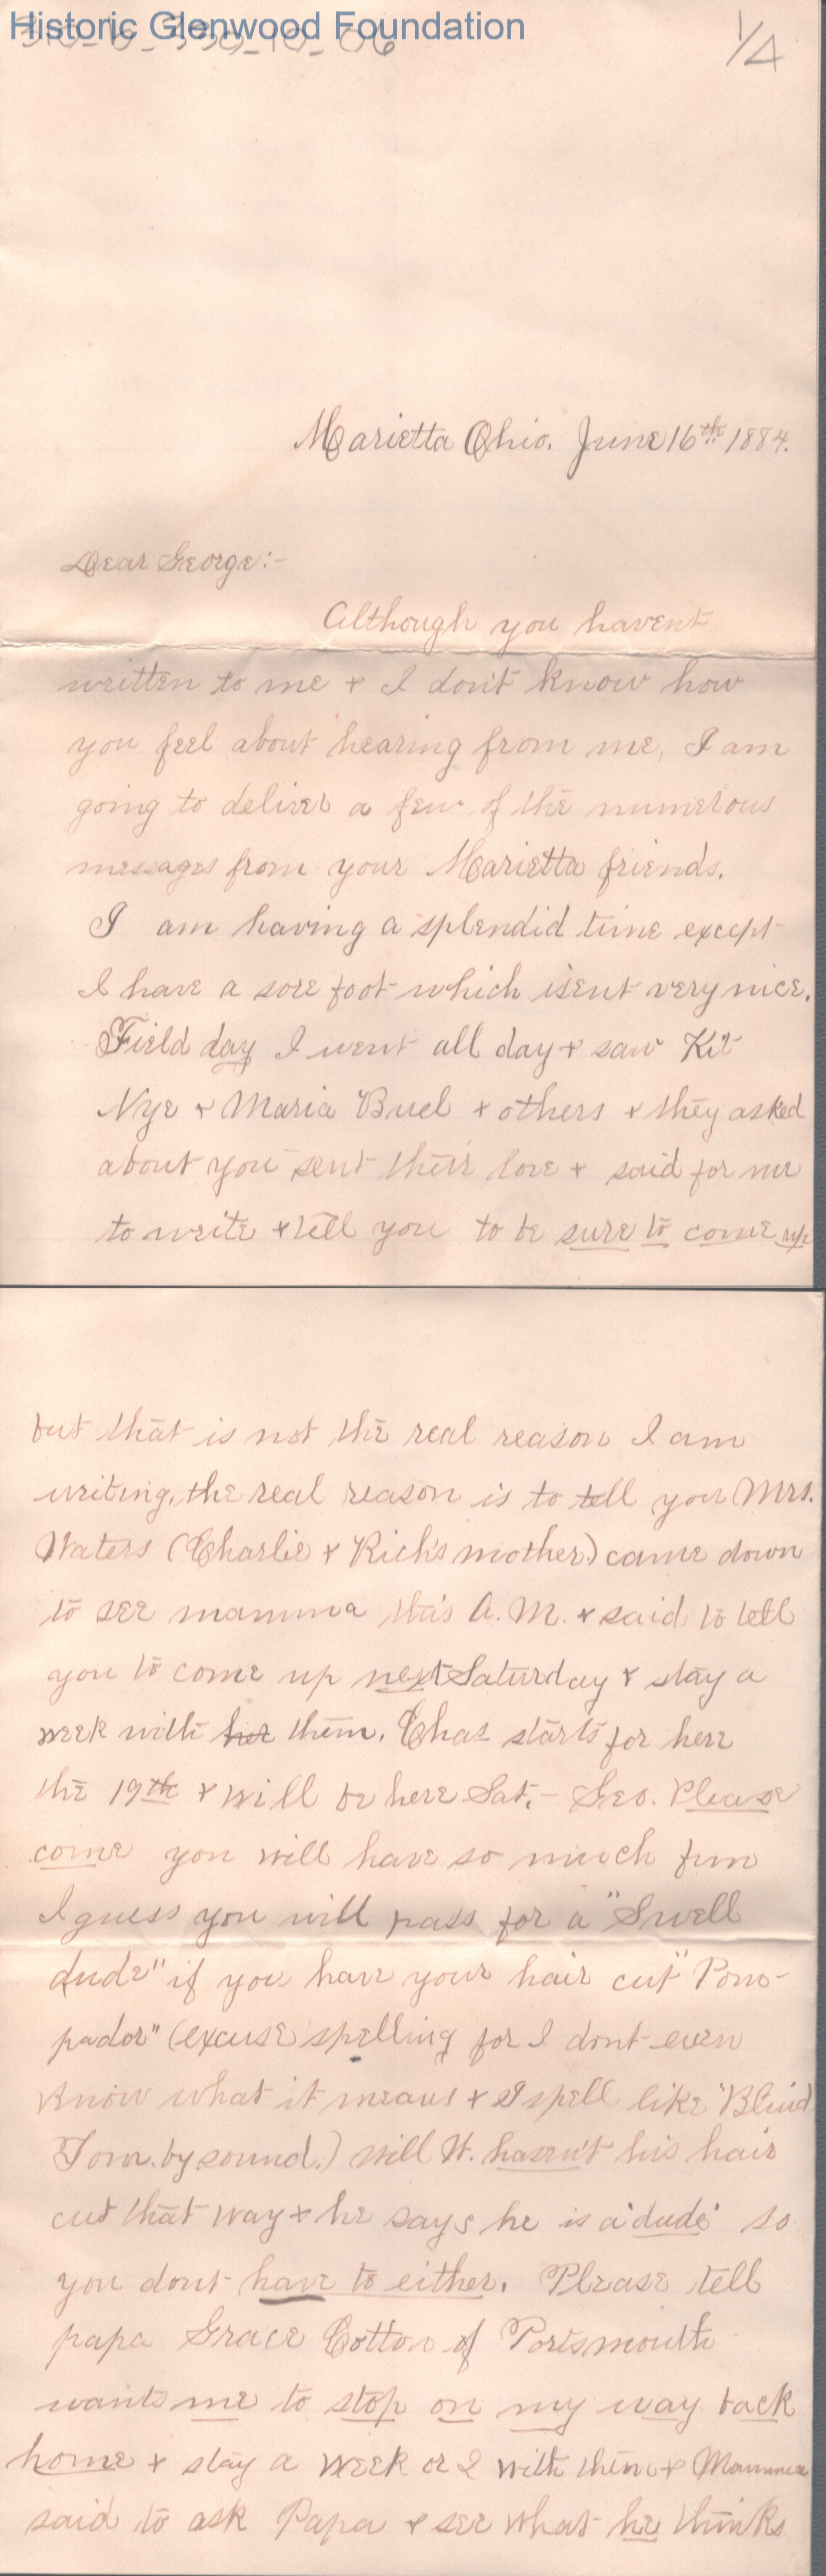 Historic Glenwood Foundation
1/4
Marietta Ohio. June 16th 1884.
Dear George:-
Although you havent
written to me & I don't know how
you feel about hearing from me, I am
going to deliver a few of the numerous
messages from your Marietta friends.
I am having a splendid time except
I have a sore foot which isent very nice.
Field day I went all day & saw Kit
Nye & Maria Buel & others & they asked
about you sent their love & said for me
to write & tell you to be sure to come up
but that is not the real reason I am
writing, the real reason is to tell you Mrs.
Waters (Charlie & Rich's mother) came down
to see mamma this A.M. & said to tell
you to come up next Saturday & stay a
week with her them. Chas starts for here
the 19th & will be here Sat. - Geo. Please
come you will have so much fun
I guess you will pass for a "Swell
dude" if you have your hair cut "Pom-
pador" (excuse spelling for I dont even
know what it means & I spell like "Blind
Tom. by sound.) Will W. hasn't his hair
cut that way & he says he is a "dude" so
you dont have to either. Please tell
papa Grace Cotton of Portsmouth
wants me to stop on my way back
home & stay a week or 2 with them & Mamma
said to ask Papa & see what he thinks